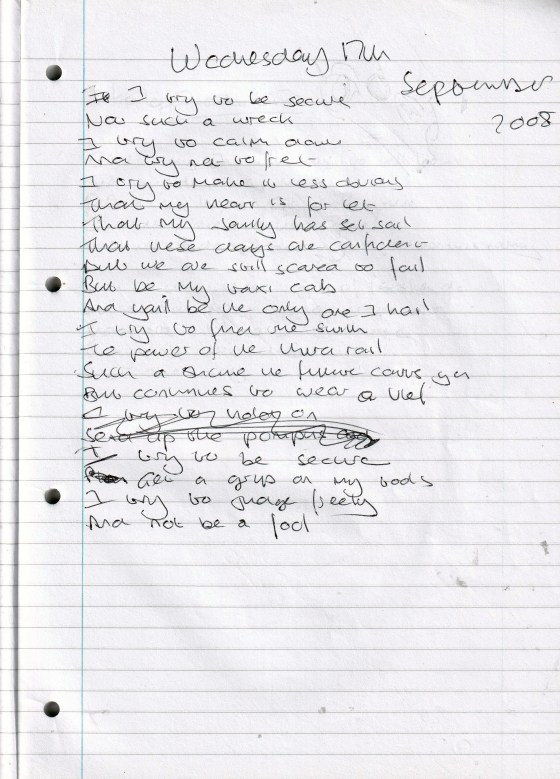 Wednesday 17th
September
2008
I try to be secure
Not such a wreck
I try to calm down
And try not to fret
I try to make it less obvious
That my heart is for let
That my sanity has set sail
That these days are confident
But we are still scared to fail
But be my taxi cab
And you'll be the only one I hail
I try to find the
The power of the third rail
Such a shame the future
But continues to wear a veil
I try to hold on
Send up the
I try to be secure
Get a grip on my
I try to judge freely
And not be a fool